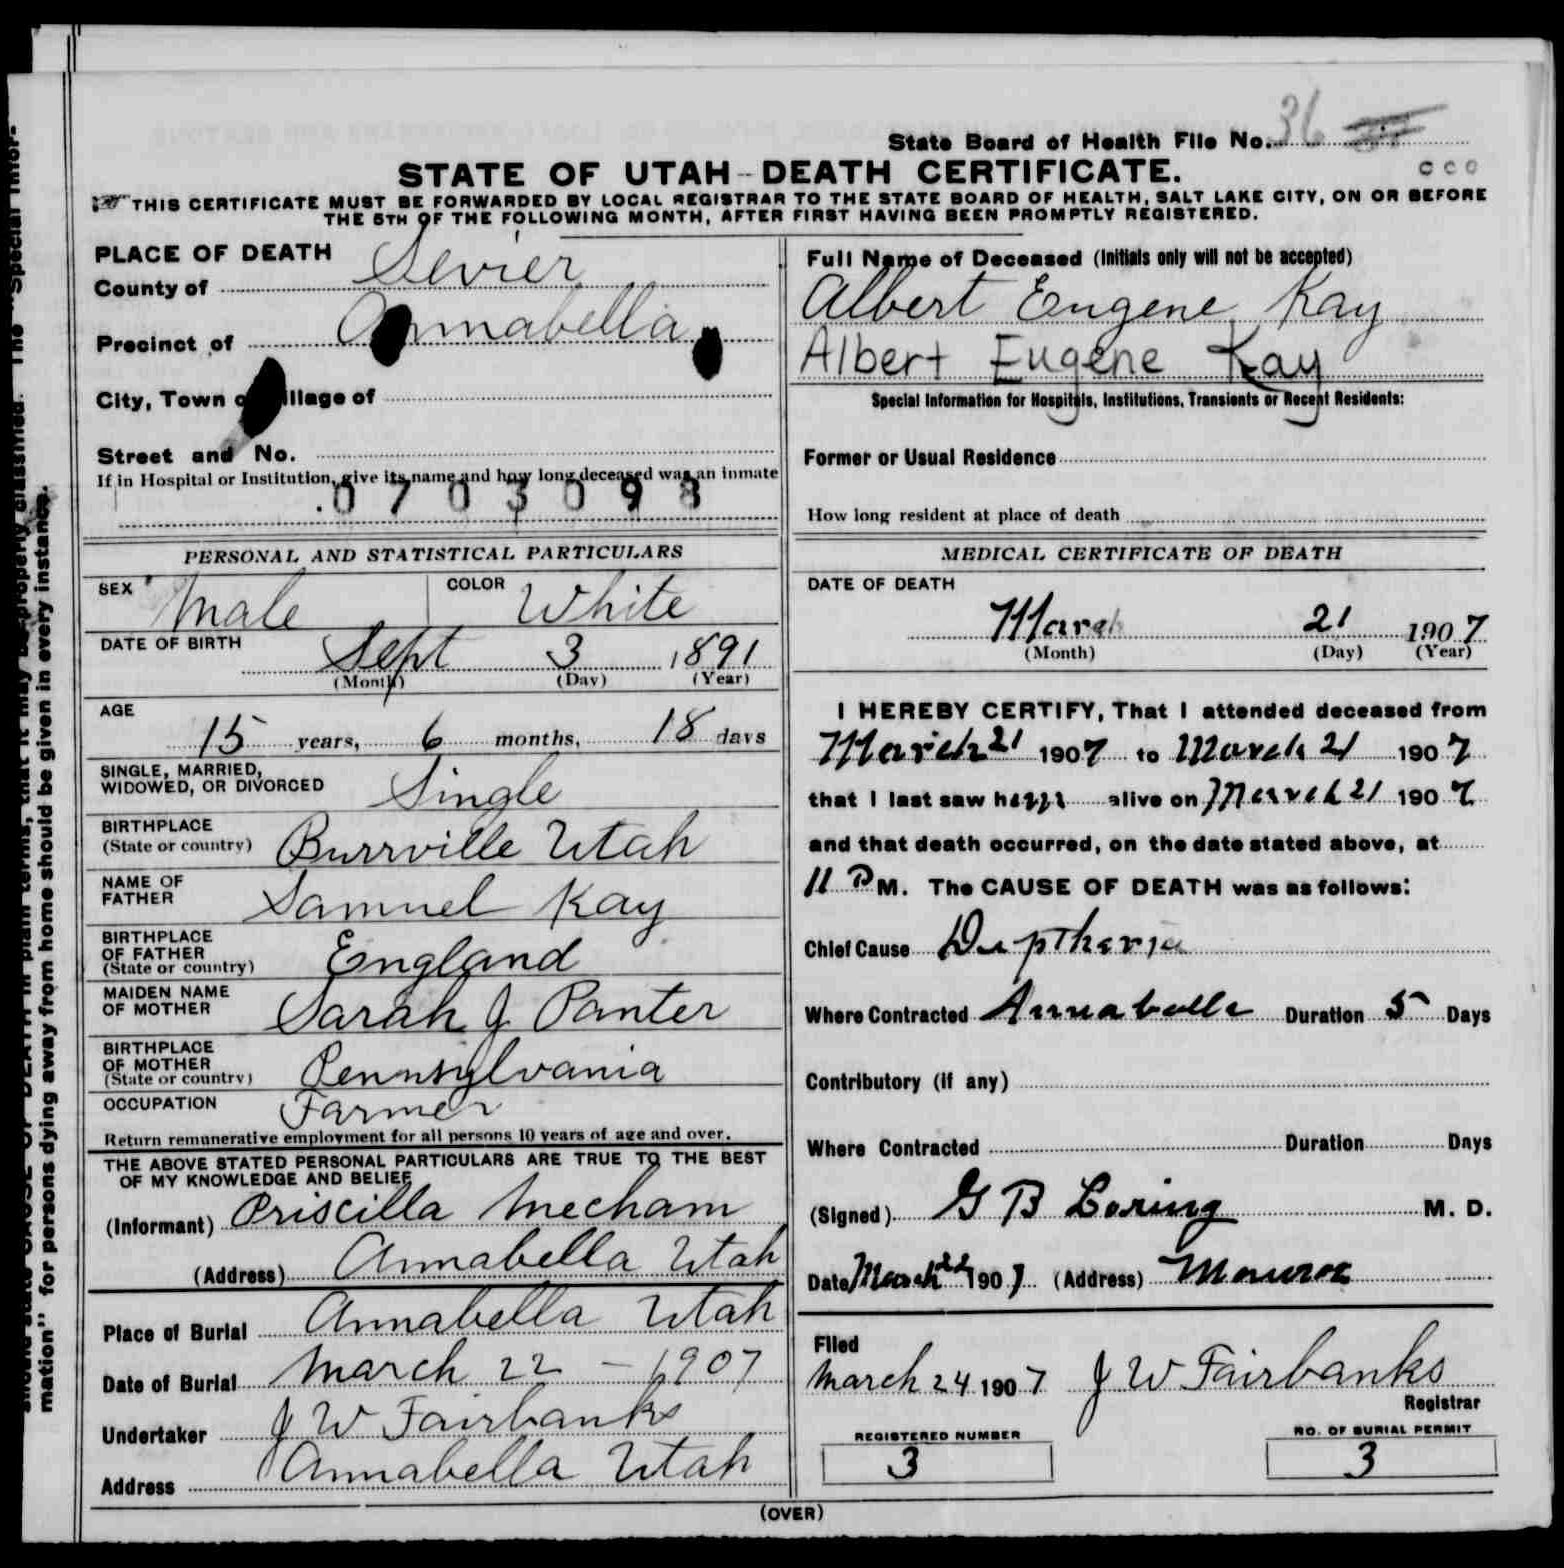 State Board of Health File No. 36
STATE OF UTAH - DEATH CERTIFICATE.
THIS CERTIFICATE MUST BE FORWARDED BY LOCAL REGISTRAR TO THE STATE BOARD OF HEALTH, SALT LAKE CITY, ON OR BEFORE
THE 5TH OF THE FOLLOWING MONTH, AFTER FIRST HAVING BEEN PROMPTLY REGISTERED.
PLACE OF DEATH
County of Sevier
Precinct of Annabella
City, Town or Village of
Street and No.
If in Hospital or Institution, give its name and how long deceased was an inmate
0703098
Full Name of Deceased (Initials only will not be accepted)
Albert Eugene Kay
Albert Eugene Kay
Special Information for Hospitals, Institutions, Transients or Recent Residents:
Former or Usual Residence
How long resident at place of death
PERSONAL AND STATISTICAL PARTICULARS
SEX Male COLOR White
DATE OF BIRTH Sept 3 1891
(Month) (Day) (Year)
AGE
15 years, 6 months, 18 days
SINGLE, MARRIED,
WIDOWED, OR DIVORCED Single
BIRTHPLACE
(State or country) Burrville Utah
NAME OF
FATHER Samuel Kay
BIRTHPLACE
OF FATHER
(State or country) England
MAIDEN NAME
OF MOTHER Sarah J Panter
BIRTHPLACE
OF MOTHER
(State or country) Pennsylvania
OCCUPATION Farmer
Return remunerative employment for all persons 10 years of age and over.
THE ABOVE STATED PERSONAL PARTICULARS ARE TRUE TO THE BEST
OF MY KNOWLEDGE AND BELIEF
(Informant) Priscilla Mecham
(Address) Annabella Utah
Place of Burial Annabella Utah
Date of Burial March 22 - 1907
Undertaker J W Fairbanks
Address Annabella Utah
MEDICAL CERTIFICATE OF DEATH
DATE OF DEATH
March 21 1907
(Month) (Day) (Year)
I HEREBY CERTIFY, That I attended deceased from
March 21 1907 to March 21 1907
that I last saw him alive on March 21 1907
and that death occurred, on the date stated above, at
11 P M. The CAUSE OF DEATH was as follows:
Chief Cause Diptheria
Where Contracted Annabella Duration 5 Days
Contributory (if any)
Where Contracted Duration Days
(Signed) G B Loring M. D.
Date March 22 1907 (Address) Monroe
Filed
March 24 1907 J W Fairbanks
Registrar
REGISTERED NUMBER
3
NO. OF BURIAL PERMIT
3
(OVER)
mation" for persons dying away from home should be given in every instance.